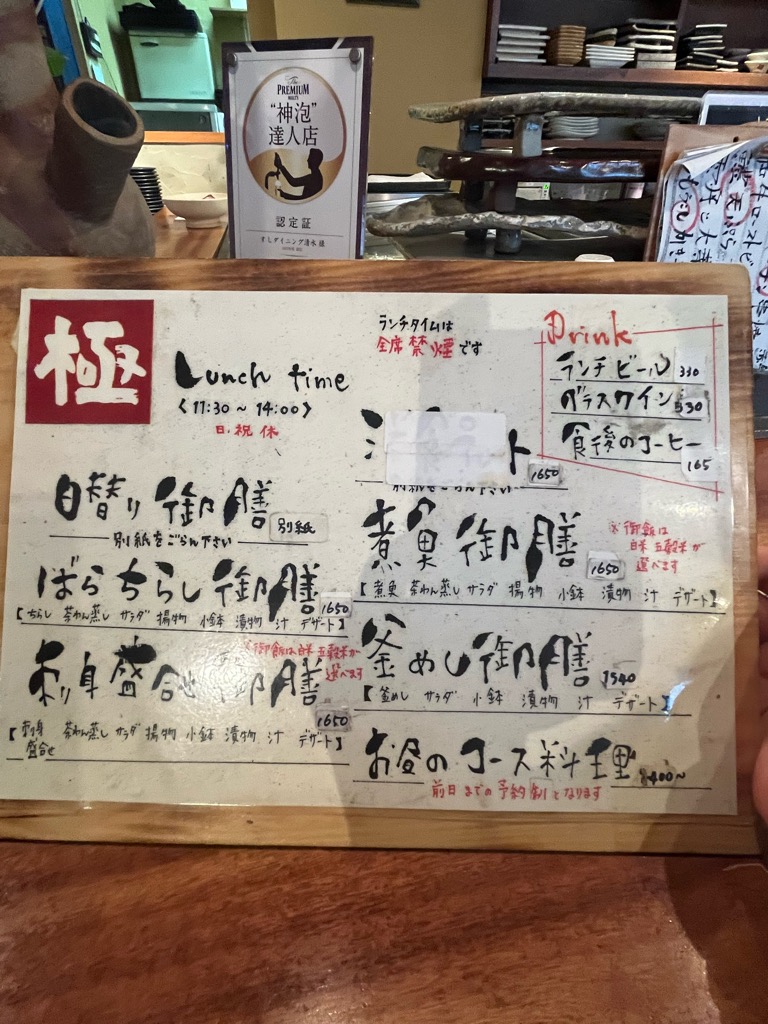 The
PREMIUM
MALT'S
“神泡”
達人店
認定証
極
Lunch time
<11:30～14:00>
日、祝 休
ランチタイムは
全席 禁煙 です
Drink
ランチビール 330
グラスワイン 530
食後のコーヒー 165
日替り 御膳 別紙
別紙をごらん下さい
ト 1650
別紙をごらん下さい
ばらちらし御膳 1650
【ちらし 茶わん蒸し サラダ 揚物 小鉢 漬物 汁 デザート】
※御飯は白米 五穀米が
選べます
刺身盛合せ御膳 1650
【刺身盛合せ 茶わん蒸し サラダ 揚物 小鉢 漬物 汁 デザート】
煮魚 御膳 1650
※御飯は
白米 五穀米が
選べます
【煮魚 茶わん蒸し サラダ 揚物 小鉢 漬物 汁 デザート】
釜めし御膳 1540
【釜めし サラダ 小鉢 漬物 汁 デザート】
お昼のコース料理 400～
前日までの予約制となります